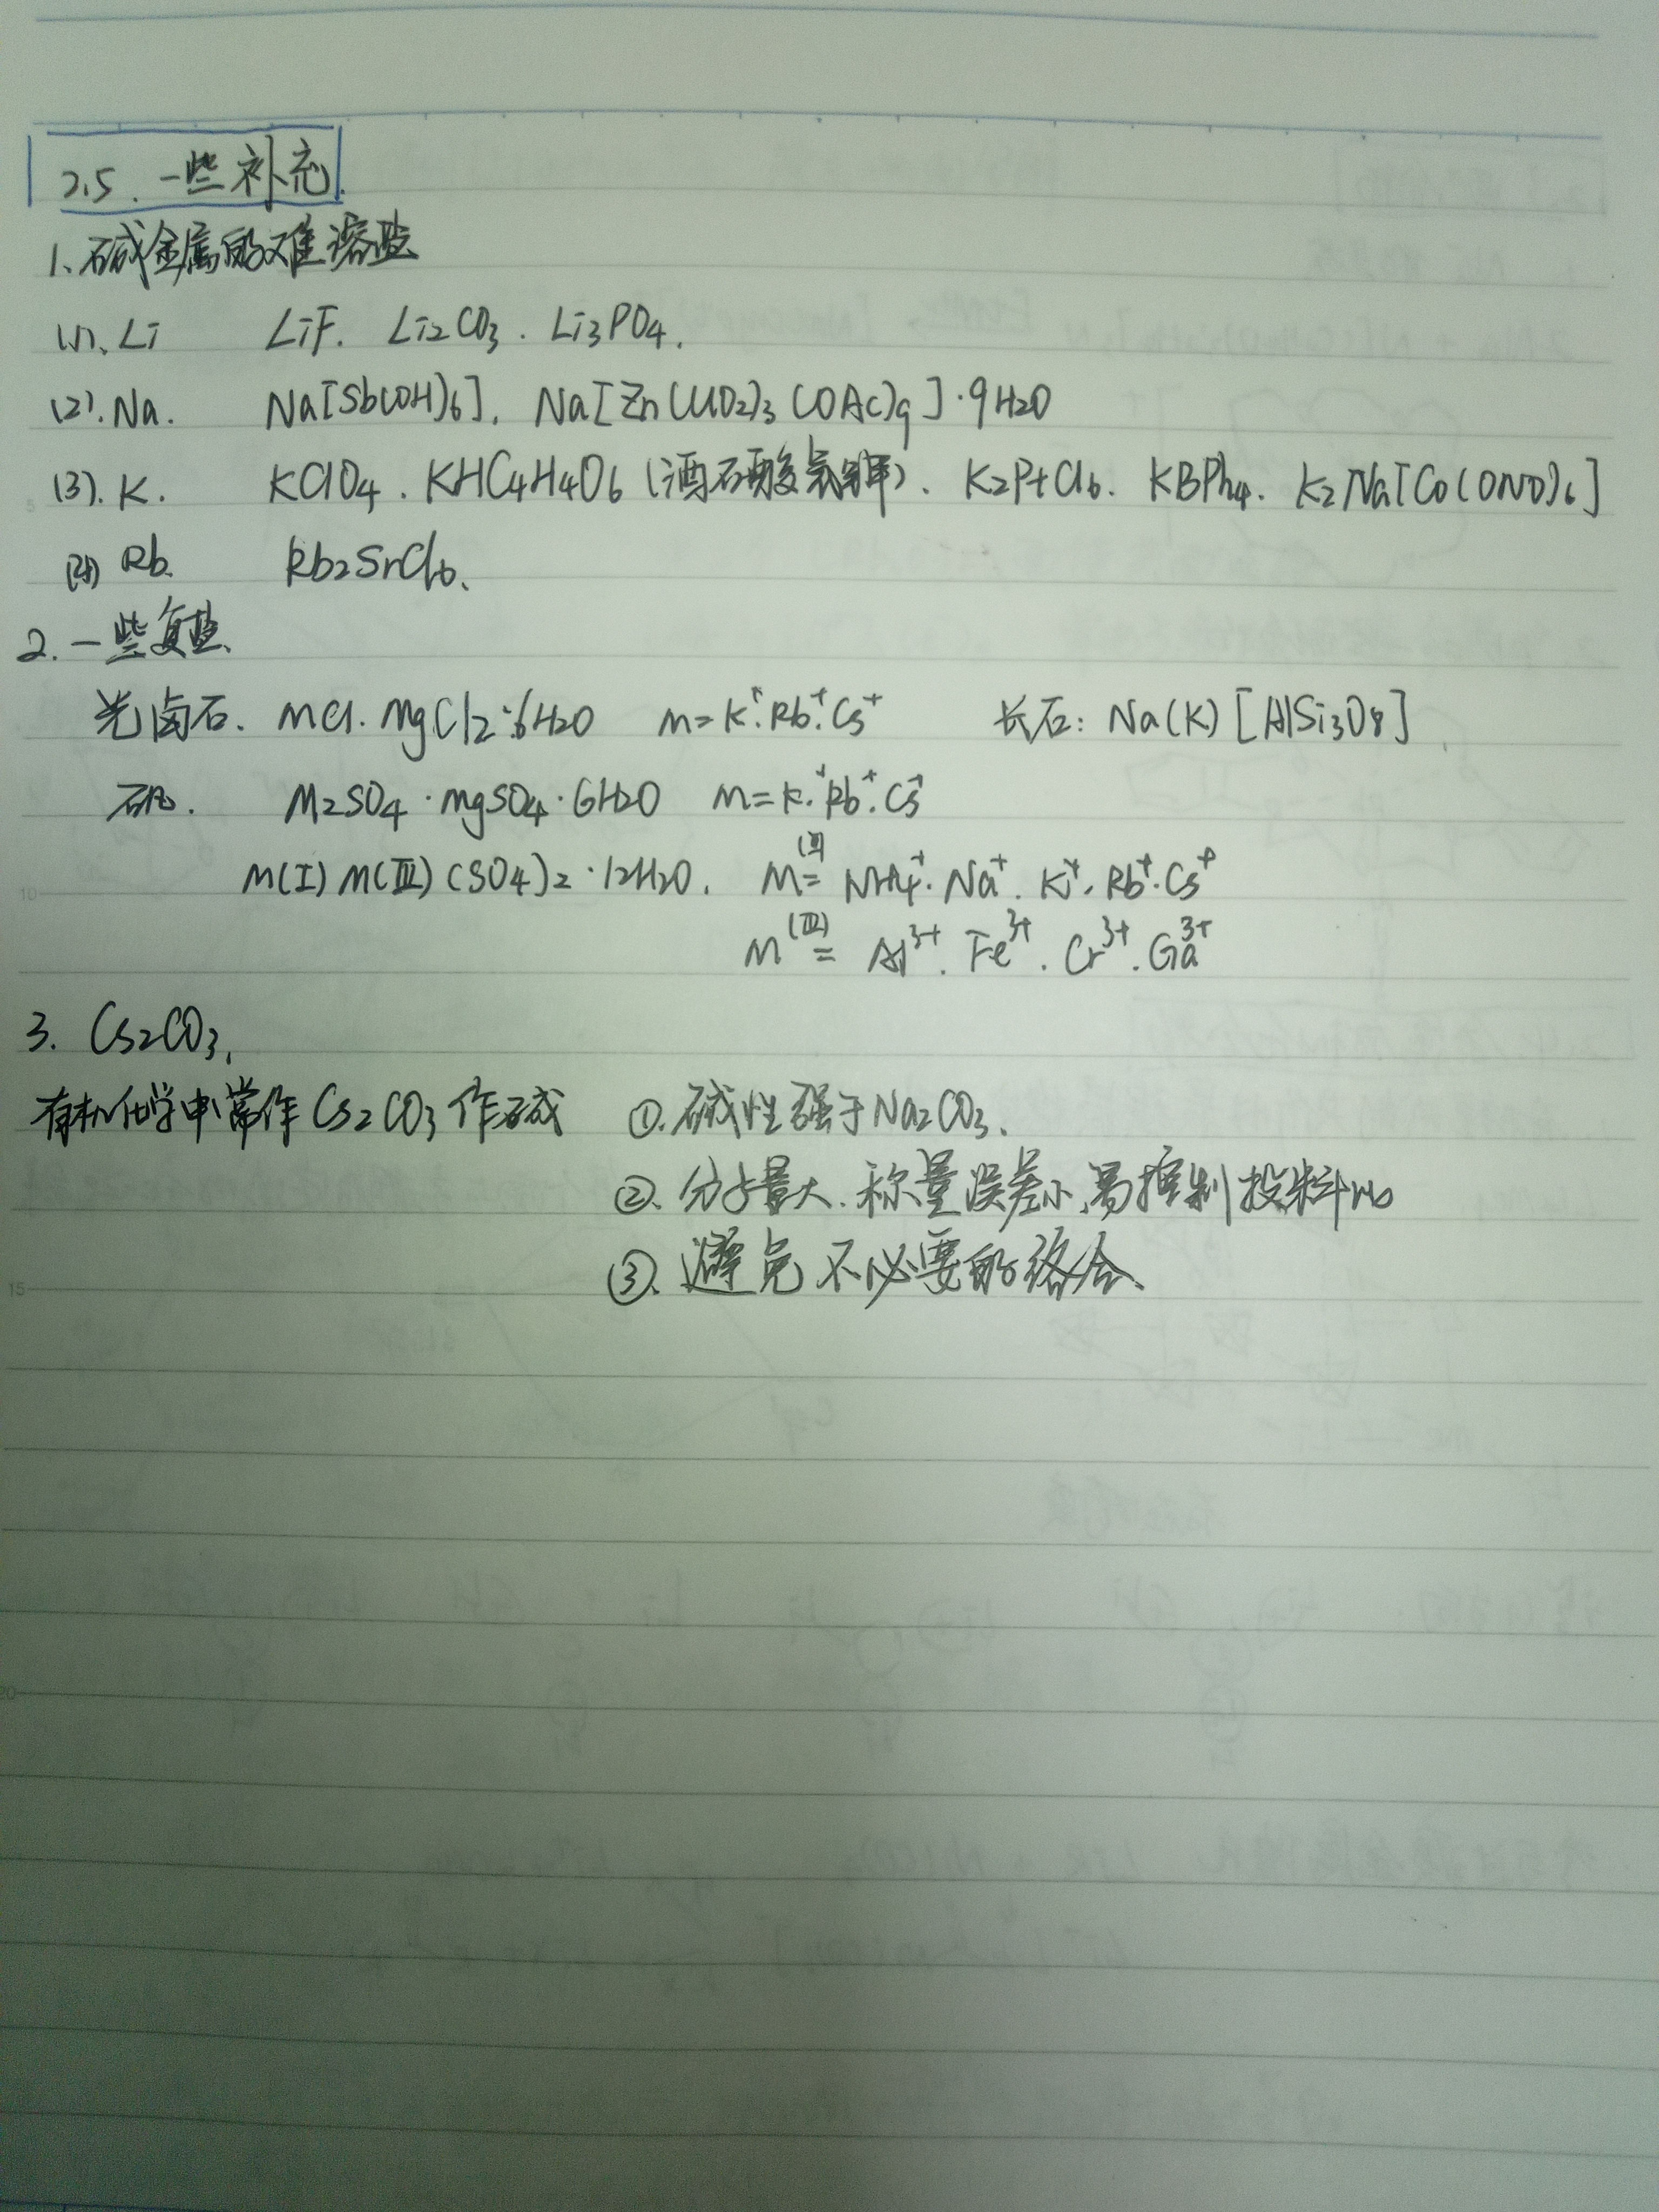 2.5. 一些补充.
1、碱金属的难溶盐
(1)、Li LiF. Li2CO3. Li3PO4.
(2). Na. Na[Sb(OH)6]. Na[Zn(UO2)3(OAc)9]·9H2O
(3). K. KClO4. KHC4H4O6 (酒石酸氢钾). K2PtCl6. KBPh4. K2Na[Co(ONO)6]
(4) Rb. Rb2SnCl6.
2. 一些复盐.
光卤石. MCl·MgCl2·6H2O M=K+.Rb+.Cs+ 长石: Na(K)[AlSi3O8]
矾. M2SO4·MgSO4·6H2O M=K+.Rb+.Cs+
M(I)M(III)(SO4)2·12H2O. M(I)= NH4+. Na+. K+. Rb+. Cs+
M(III)= Al3+. Fe3+. Cr3+. Ga3+
3. Cs2CO3.
有机化学中常作Cs2CO3作碱 ①.碱性强于Na2CO3.
②. 分子量大.称量误差小,易控制投料比
③. 避免不必要的络合.
5
10
15
20